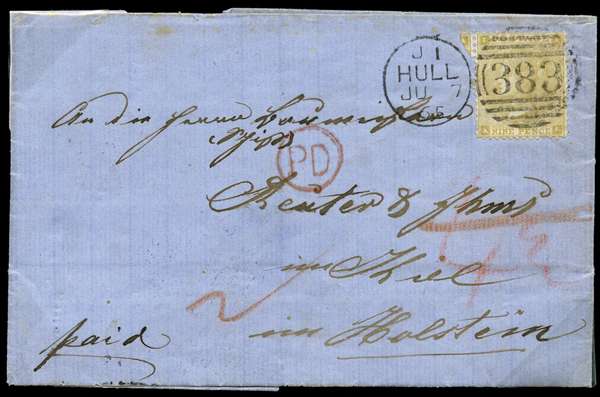 POSTAGE
J 1
HULL
JU 7
65
383
NINE PENCE
An die Herrn
PD
Reuter &
in Kiel
in Holstein
paid